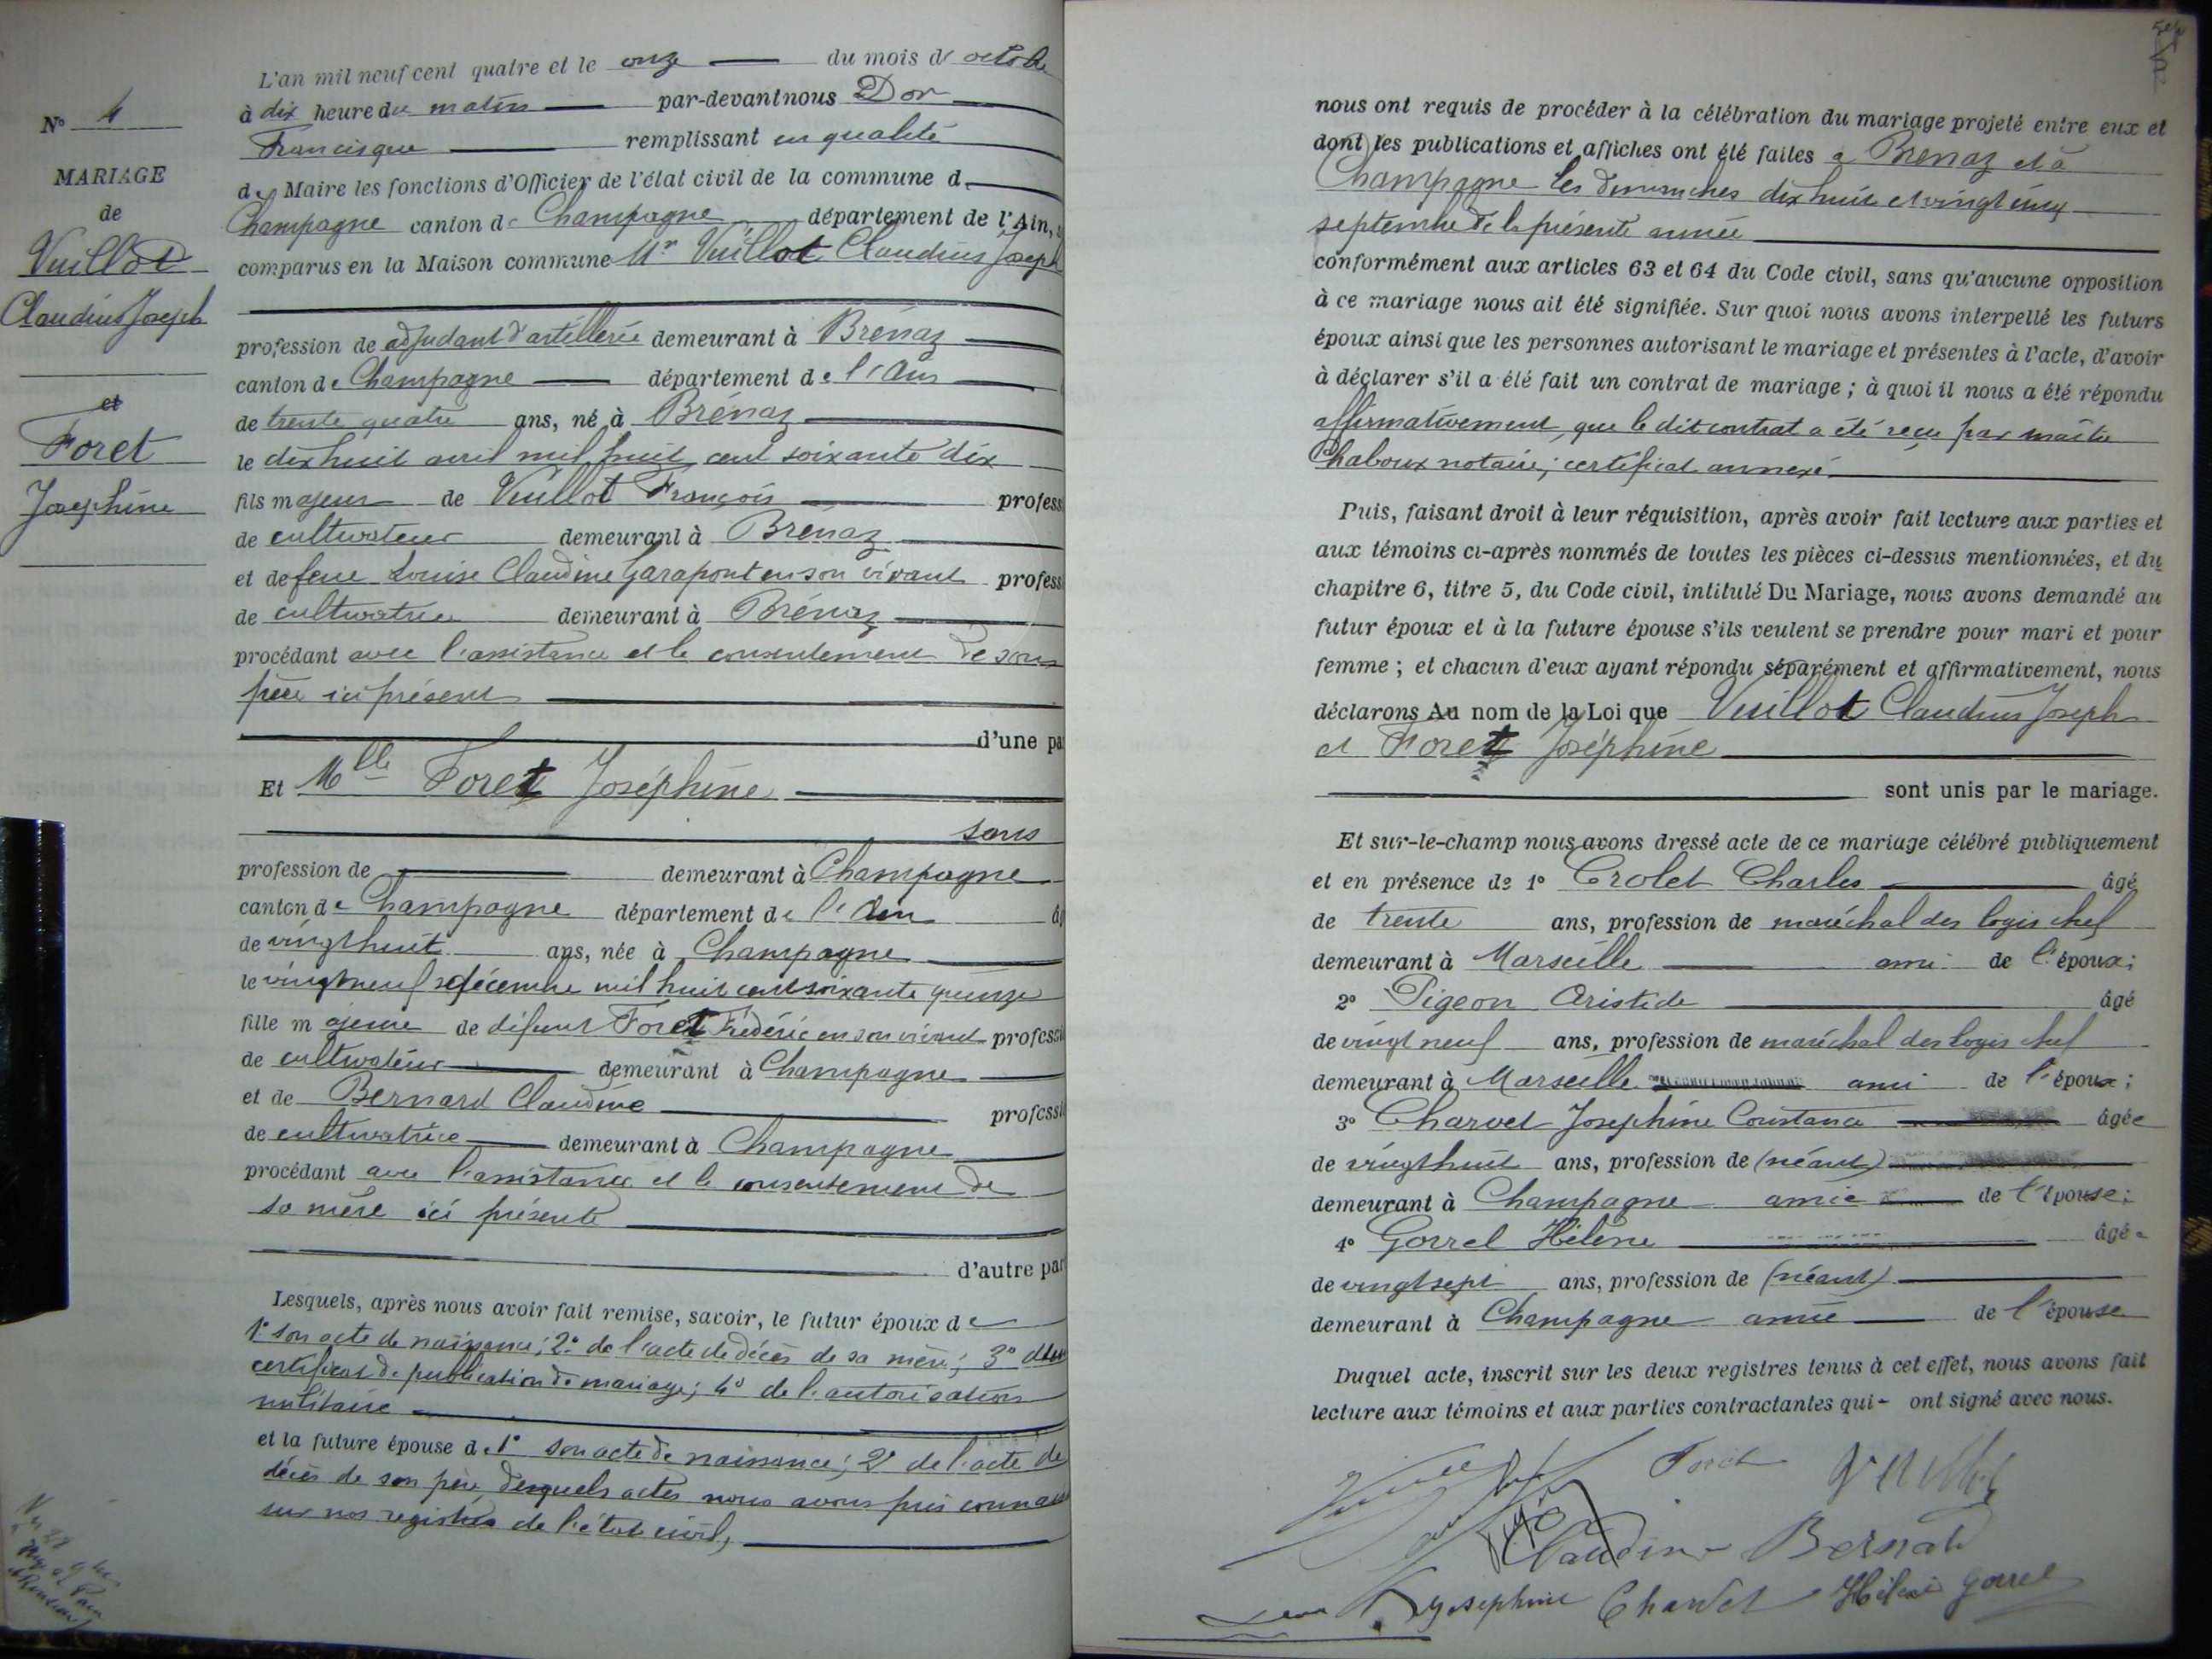 N° 4
MARIAGE
de
Vuillot
Claudius Joseph
et
Foret
Josephine
L'an mil neuf cent quatre et le onze du mois d' octobre
à dix heure du matin par-devant nous Dor
Francisque remplissant en qualité
de Maire les fonctions d'Officier de l'état civil de la commune de
Champagne canton de Champagne département de l'Ain,
comparus en la Maison commune Mr Vuillot Claudius Joseph
profession de adjudant d'artillerie demeurant à Brénaz
canton de Champagne département de l'Ain
de trente quatre ans, né à Brénaz
le dix huit avril mil huit cent soixante dix
fils majeur de Vuillot François profess
de cultivateur demeurant à Brénaz
et de feue Louise Claudine Garapont en son vivant profess
de cultivatrice demeurant à Brénaz
procédant avec l'assistance et le consentement de son
père ici présent
d'une pa
Et Mlle Foret Joséphine
sans
profession de demeurant à Champagne
canton de Champagne département de l'Ain âg
de vingt huit ans, née à Champagne
le vingt neuf décembre mil huit cent soixante quinze
fille majeure de défunt Foret Frédéric en son vivant professi
de cultivateur demeurant à Champagne
et de Bernard Claudine professi
de cultivatrice demeurant à Champagne
procédant avec l'assistance et le consentement de
sa mère ici présente
d'autre par
Lesquels, après nous avoir fait remise, savoir, le futur époux de
1° son acte de naissance; 2° de l'acte de décès de sa mère; 3° du
certificat de publication de mariage; 4° de l'autorisation
militaire
et la future épouse de 1° son acte de naissance; 2° de l'acte de
décès de son père, desquels actes nous avons pris connai
sur nos registres de l'état civil,
nous ont requis de procéder à la célébration du mariage projeté entre eux et
dont les publications et affiches ont été faites à Brénaz et à
Champagne les dimanches dix huit et vingt cinq
septembre de la présente année
conformément aux articles 63 et 64 du Code civil, sans qu'aucune opposition
à ce mariage nous ait été signifiée. Sur quoi nous avons interpellé les futurs
époux ainsi que les personnes autorisant le mariage et présentes à l'acte, d'avoir
à déclarer s'il a été fait un contrat de mariage; à quoi il nous a été répondu
affirmativement, que le dit contrat a été reçu par maître
Chaboux notaire; certificat annexé
Puis, faisant droit à leur réquisition, après avoir fait lecture aux parties et
aux témoins ci-après nommés de toutes les pièces ci-dessus mentionnées, et du
chapitre 6, titre 5, du Code civil, intitulé Du Mariage, nous avons demandé au
futur époux et à la future épouse s'ils veulent se prendre pour mari et pour
femme; et chacun d'eux ayant répondu séparément et affirmativement, nous
déclarons Au nom de la Loi que Vuillot Claudius Joseph
et Foret Joséphine
sont unis par le mariage.
Et sur-le-champ nous avons dressé acte de ce mariage célébré publiquement
et en présence de 1° Crolet Charles âgé
de trente ans, profession de maréchal des logis chef
demeurant à Marseille ami de l'époux;
2° Pigeon Aristide âgé
de vingt neuf ans, profession de maréchal des logis chef
demeurant à Marseille ami de l'époux;
3° Charvet Josephine Constance âgée
de vingt huit ans, profession de (néant)
demeurant à Champagne amie de l'épouse;
4° Gorrel Hélène âgée
de vingt sept ans, profession de (néant)
demeurant à Champagne amie de l'épouse
Duquel acte, inscrit sur les deux registres tenus à cet effet, nous avons fait
lecture aux témoins et aux parties contractantes qui ont signé avec nous.
Foret Vuillot
Claudine Bernard
Josephine Charvet Hélène Gorrel